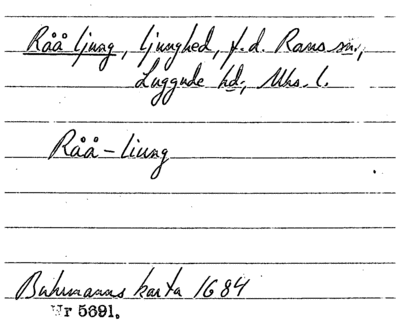 Råå ljung, ljunghed, f.d. Raus sn.,
Luggude hd., Mhs. l.
Råå-liung
Buhrmanns karta 1684
Nr 5691.